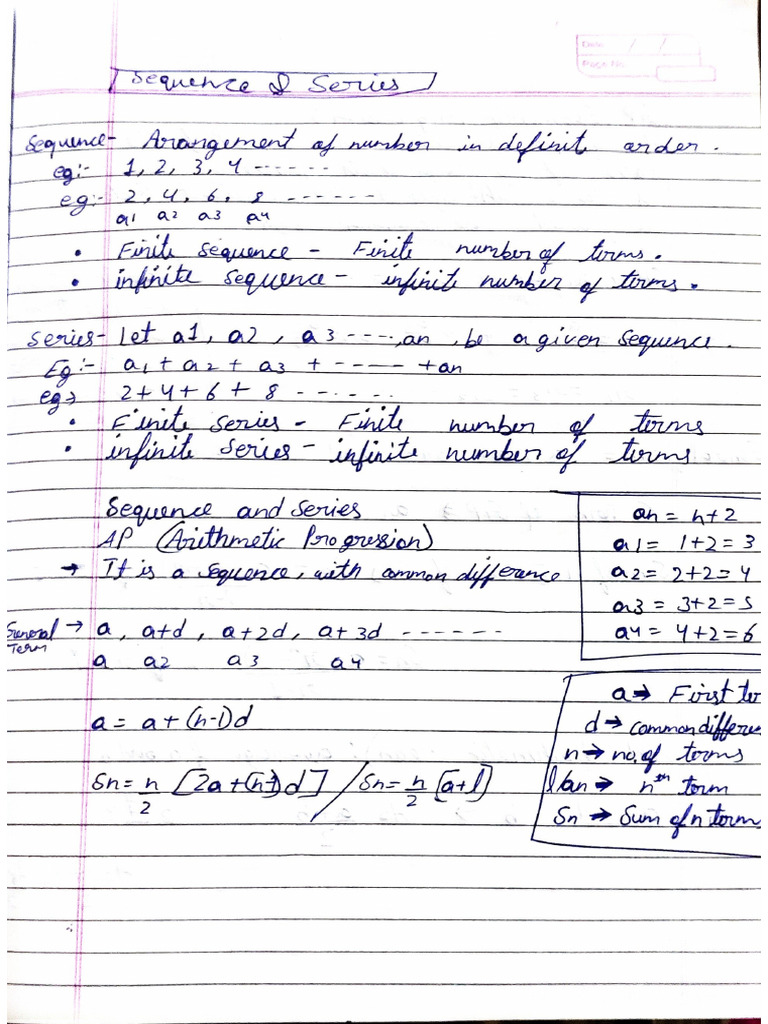 Date / /
Page No.
Sequence & Series
Sequence - Arangement of number in definit order.
eg:- 1, 2, 3, 4 ------
eg:- 2, 4, 6, 8 -------
a1 a2 a3 a4
• Finite sequence - Finite number of terms.
• infinite sequence - infinit number of terms.
Series - Let a1, a2, a3 ----,an, be a given sequence.
Eg:- a1 + a2 + a3 + ----- +an
eg→ 2+4+6+8 ------
• Finite series - Finite number of terms
• infinite series - infinite number of terms
Sequence and series
AP (Arithmetic Progression)
→ It is a sequence, with common difference
an = n+2
a1 = 1+2=3
a2 = 2+2=4
a3 = 3+2=5
a4 = 4+2=6
General Term → a, a+d, a+2d, a+3d ------
a a2 a3 a4
a = a+(n-1)d
Sn = n/2 [2a+(n-1)d] / Sn = n/2 [a+l]
a → First te
d → common differen
n → no. of terms
l/an → nth term
Sn → Sum of n terms